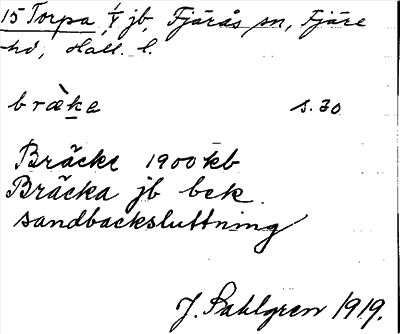 15 Torpa, 1/4 jb, Fjärås sn, Fjäre
hd, Hall. l.
bræ̀ke s. 30
Bräcke 1900 kb
Bräcka jb bek.
sandbacksluttning
J. Sahlgren 1919.